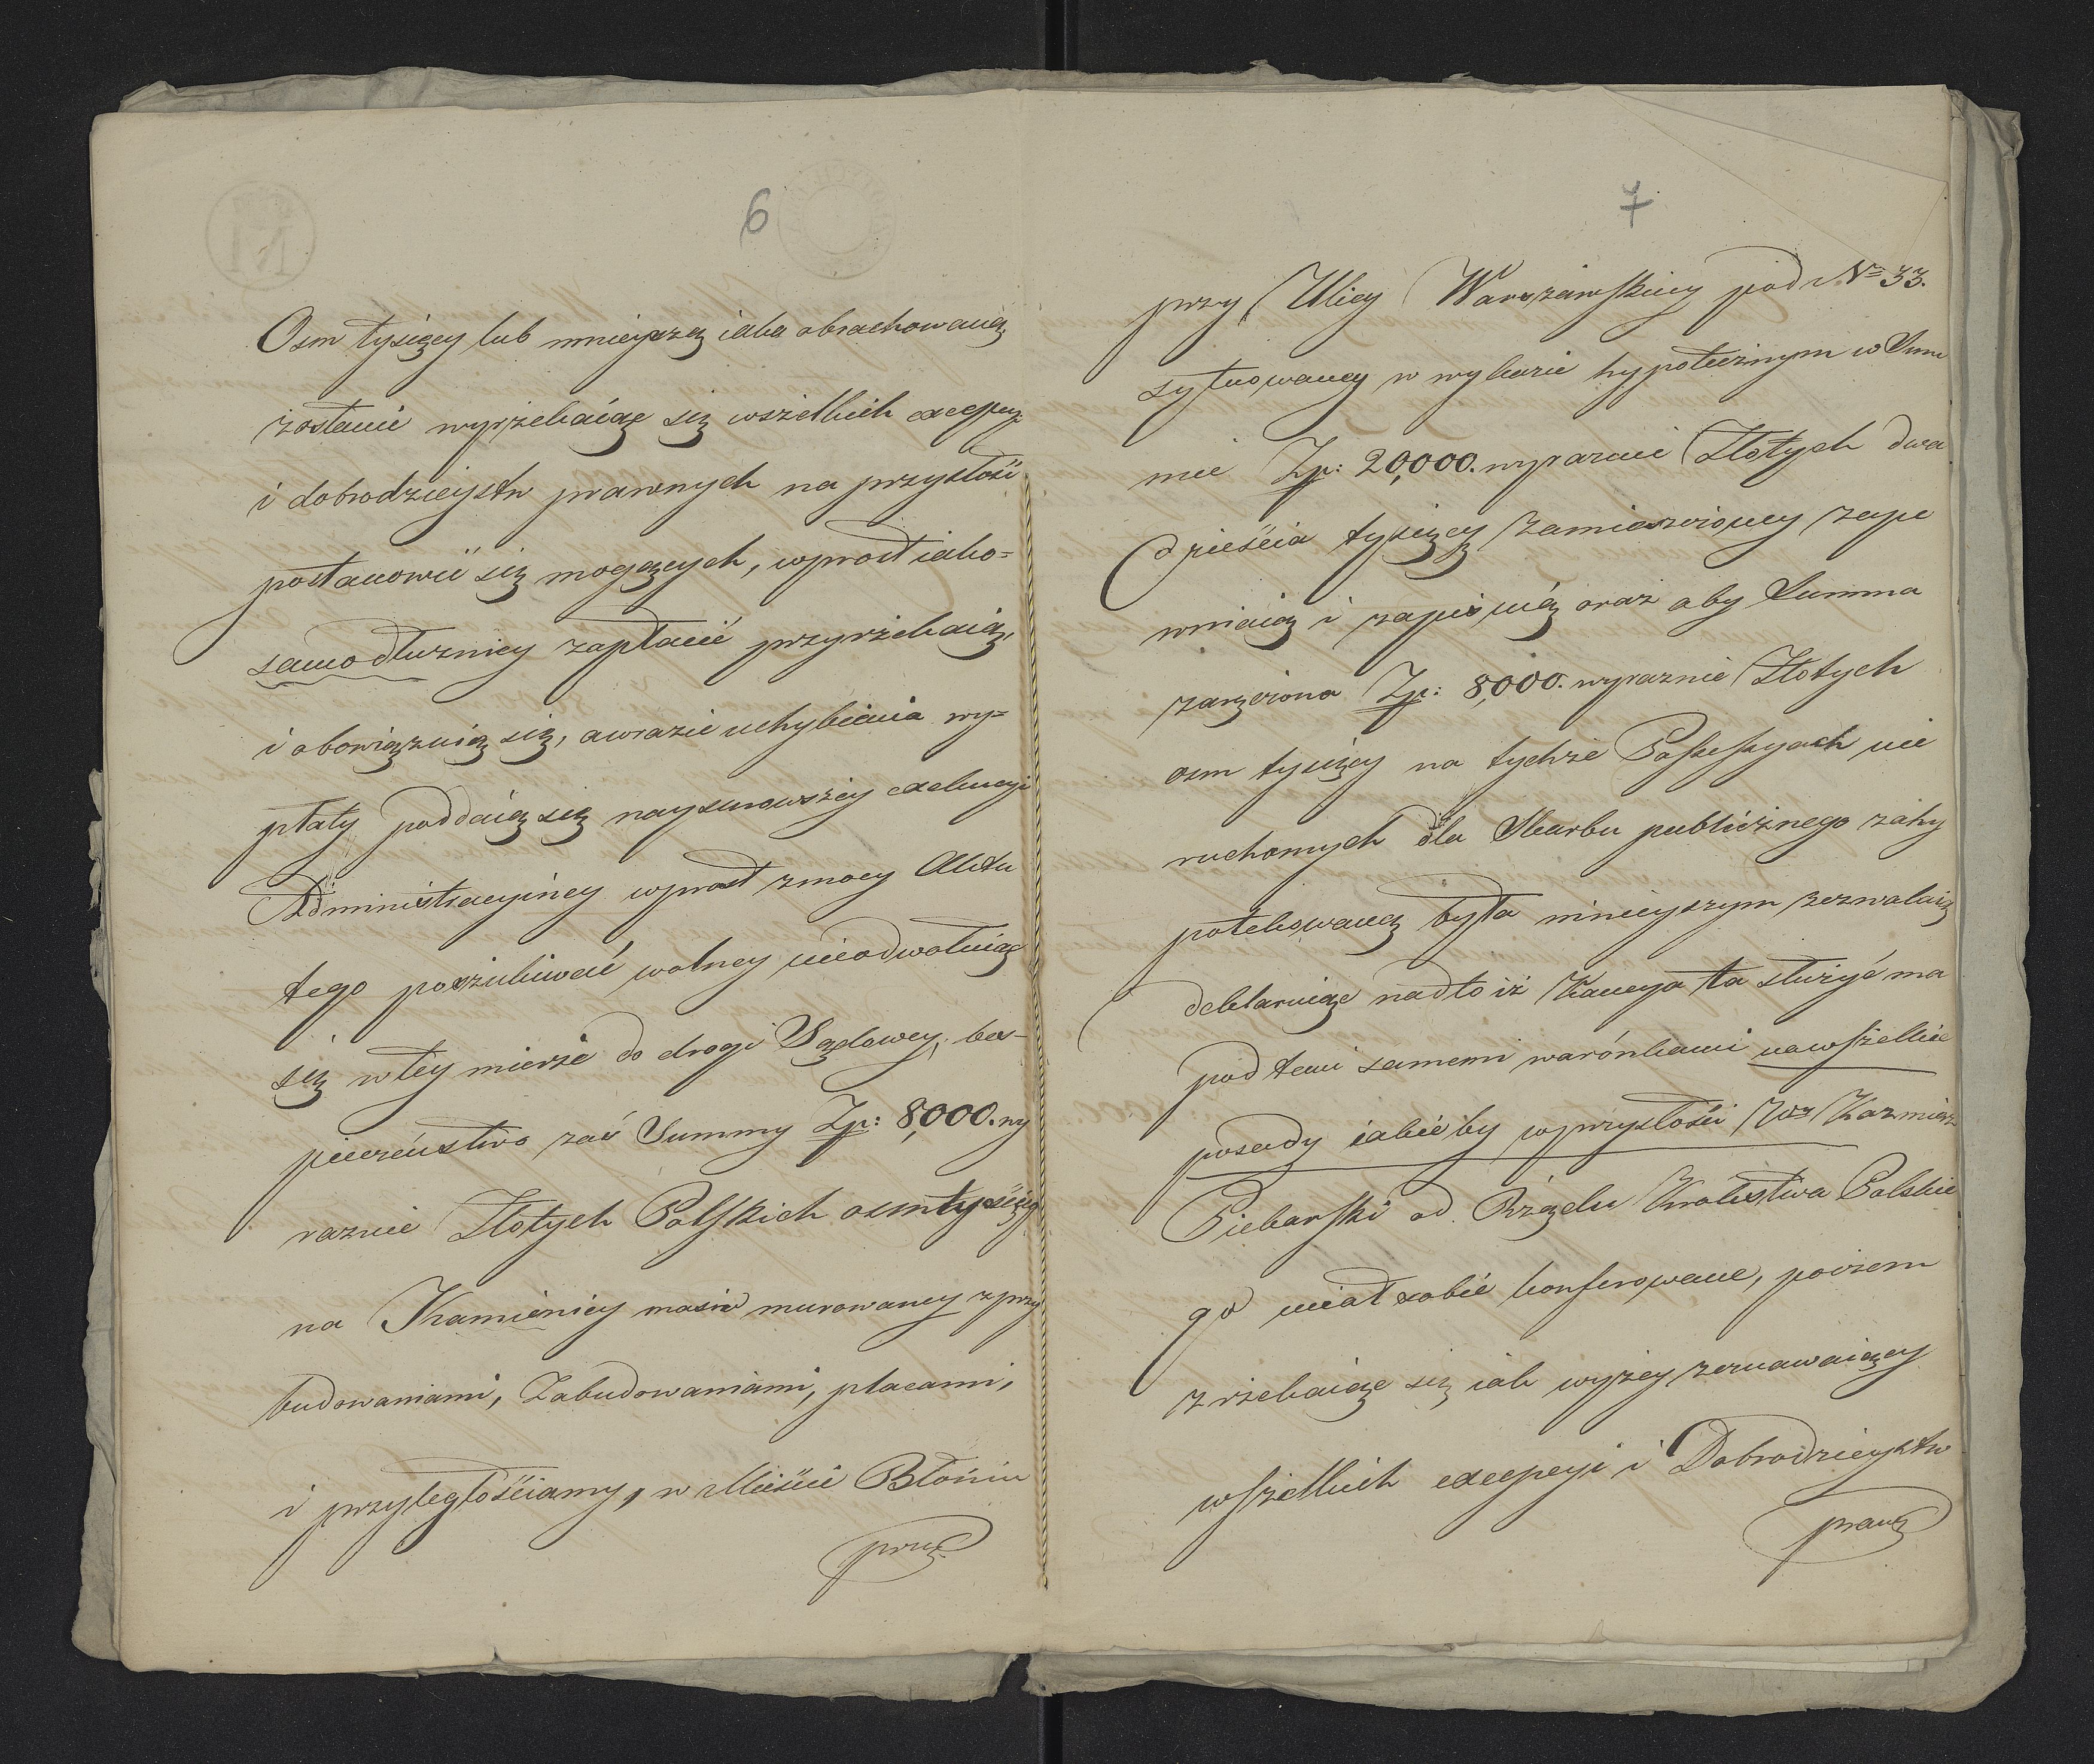 6
Osm tysięcy lub mnieyszą iaka obrachowaną
zostanie wyrzekaiąc się wszelkich excepcy
i dobrodzieystw prawnych na przyszłość
postanowić się mogących, wprost iako=
samodłużnicy zapłacić przyrzekaią,
i obowiązuią się, a w razie uchybienia wy=
płaty poddaią się naysurowszey exekucyi
Administracyiney wprost z mocy Aktu
tego poszukiwać wolney nieodwołuiąc
się w tey mierze do drogi Sądowey, bes-
pieczeństwo zaś Summy Zp: 8,000. wy
raznie Złotych Polskich osm tysięcy
na Kamienicy masiw murowaney z przy
budowaniami, Zabudowaniami, placami,
i przyległościamy, w Mieście Błoniu
przy
7
przy Ulicy Warszawskiey pod Nr 33.
sytuowaney w wykazie hypotecznym w Sum
mie Zp: 20,000. wyraznie Złotych dwa
dzieścia tysięcy zamieszczoney zape
wniaią i zapisuią oraz aby Summa
zaręczona Zp: 8,000. wyraznie Złotych
osm tysięcy na tychże Possessyach nie
ruchomych dla Skarbu publicznego zahy
potekowaną była ninieyszym zezwalaią
deklaruiąc nadto iż Kaucya ta służyć ma
pod temi samemi warónkami na wszelkie
posady iakie by w przyszłości Wny Kazmierz
Piekarski od Rządu Krolestwa Polskie
go miał sobie konferowane, poczem
zrzekaiąc się iak wyżey zeznawaiący
wszelkich excepcyi i Dobrodzieystw
prawn